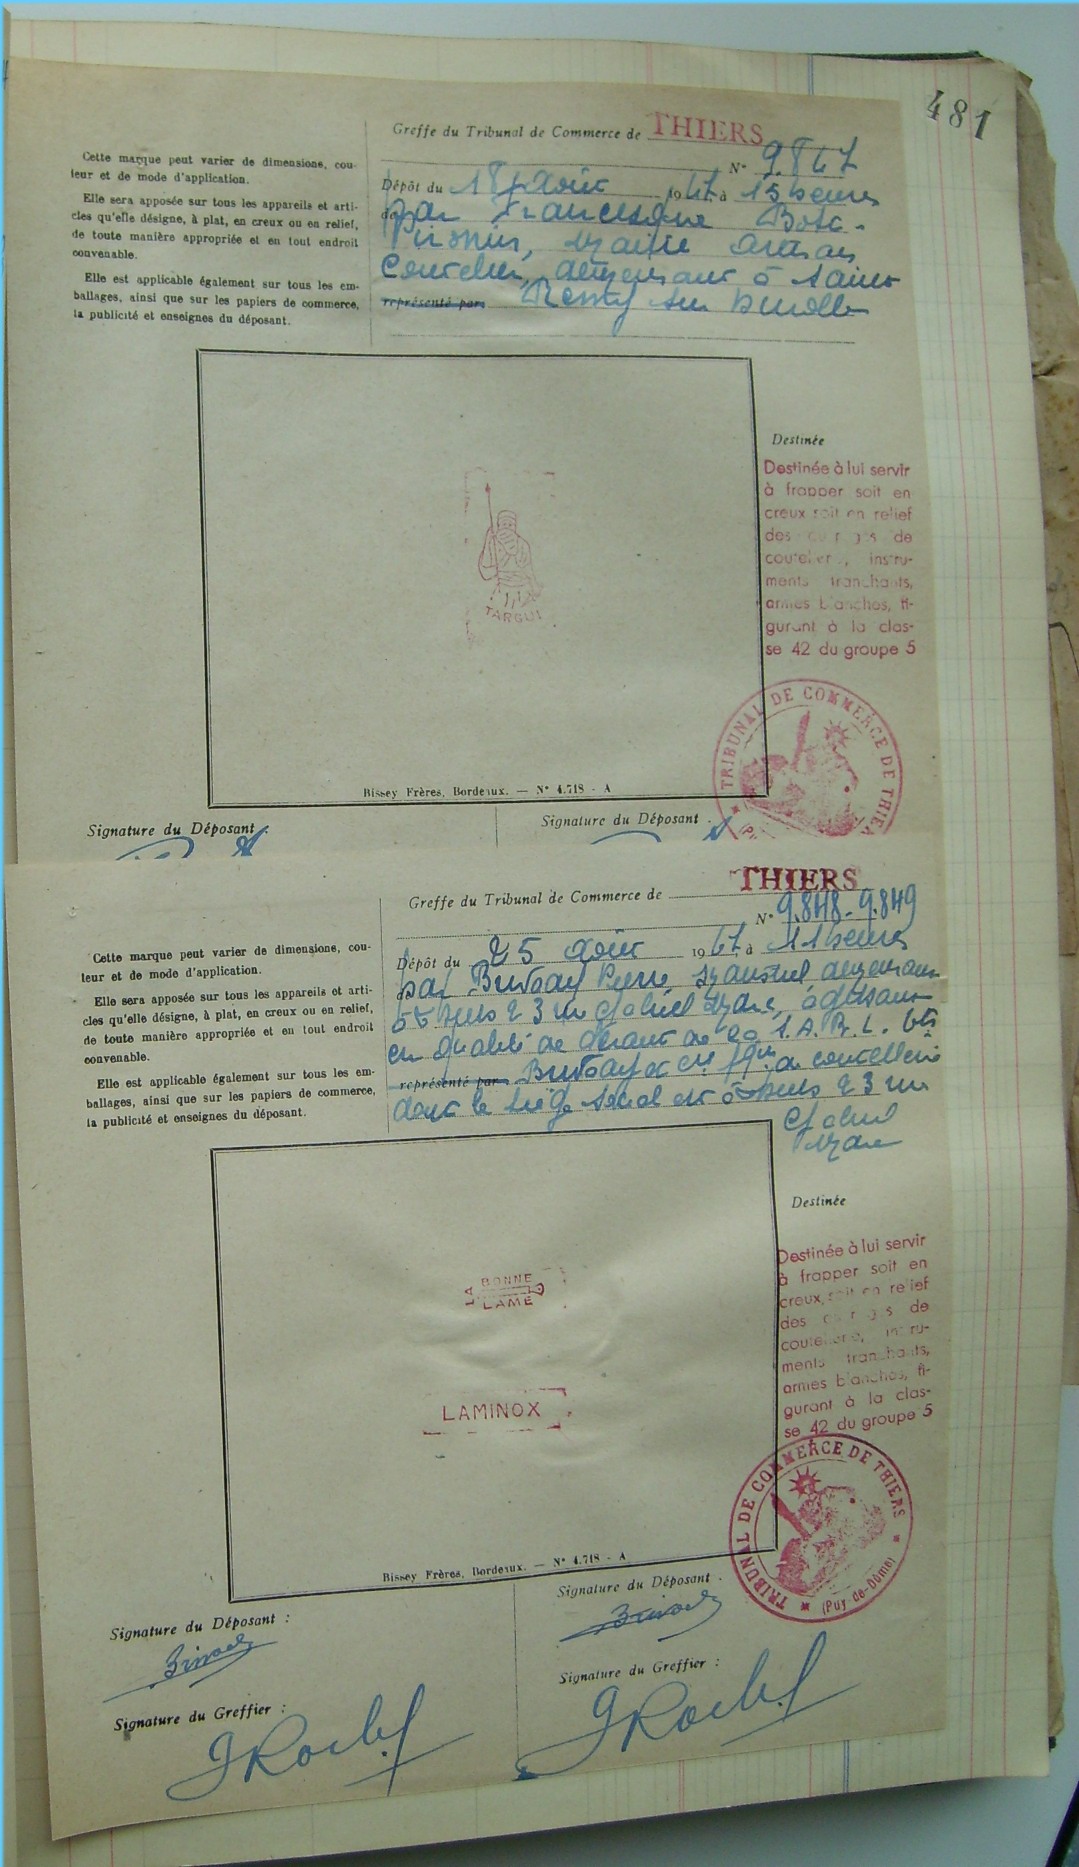 481
Greffe du Tribunal de Commerce de THIERS
N° 9.847
Cette marque peut varier de dimensions, cou-
leur et de mode d'application.
Elle sera apposée sur tous les appareils et arti-
cles qu'elle désigne, à plat, en creux ou en relief,
de toute manière appropriée et en tout endroit
convenable.
Elle est applicable également sur tous les em-
ballages, ainsi que sur les papiers de commerce,
la publicité et enseignes du déposant.
Dépôt du 18 Août 1947 à 15 heures
par Francisque
artisan
Coutelier, demeurant à Saint
représenté par Remy sur Durolle
TARGUI
Destinée
Destinée à lui servir
à frapper soit en
creux soit en relief
des de
coutellerie, instru-
ments tranchants,
armes blanches, fi-
gurant à la clas-
se 42 du groupe 5
TRIBUNAL DE COMMERCE DE THIERS
Bissey Frères, Bordeaux. — N° 4.718 - A
Signature du Déposant :
Signature du Déposant :
Greffe du Tribunal de Commerce de THIERS
N° 9.848-9.849
Cette marque peut varier de dimensione, cou-
leur et de mode d'application.
Elle sera apposée sur tous les appareils et arti-
cles qu'elle désigne, à plat, en creux ou en relief,
de toute manière appropriée et en tout endroit
convenable.
Elle est applicable également sur tous les em-
ballages, ainsi que sur les papiers de commerce,
la publicité et enseignes du déposant.
Dépôt du 25 Août 1947 à 11 heures
par Pierre industriel demeurant
23 rue Gabriel Marc, agissant
en qualité de gérant de la S.A.R.L. Ets
représenté par et Cie de coutellerie
dont le siège social est à 23 rue
Gabriel
Marc
Destinée
Destinée à lui servir
à frapper soit en
creux, soit en relief
des de
coutellerie, instru-
ments tranchants,
armes blanches, fi-
gurant à la clas-
se 42 du groupe 5
LA BONNE
LAME
LAMINOX
TRIBUNAL DE COMMERCE DE THIERS
(Puy-de-Dôme)
Bissey Frères, Bordeaux. — N° 4.718 - A
Signature du Déposant :
Signature du Déposant :
Signature du Greffier :
Signature du Greffier :